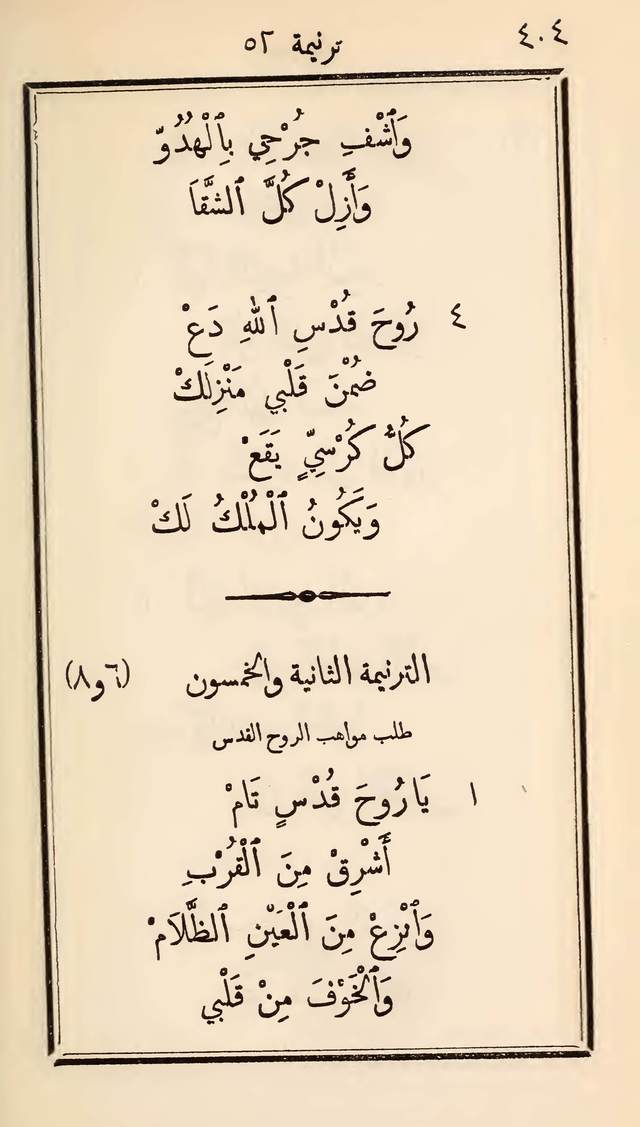 ٤٠٤
ترنيمة ٥٢
وَٱشْفِ جُرْحِي بِٱلْهُدُوّ
وَأَزِلْ كُلَّ ٱلشَّقَا
٤ رُوحَ قُدْسِ ٱللهِ دَعْ
ضِمْنَ قَلْبِي مَنْزِلَكْ
كُلُّ كُرْسِيٍّ يَقَعْ
وَيَكُونُ ٱلْمُلْكُ لَكْ
الترنيمة الثانية والخمسون (٦و٨)
طلب مواهب الروح القدس
١ يَا رُوحَ قُدْسٍ تَامْ
أَشْرِقْ مِنَ ٱلْقُرْبِ
وَٱنْزِعْ مِنَ ٱلْعَيْنِ ٱلظَّلَامْ
وَٱلْخَوْفَ مِنْ قَلْبِي